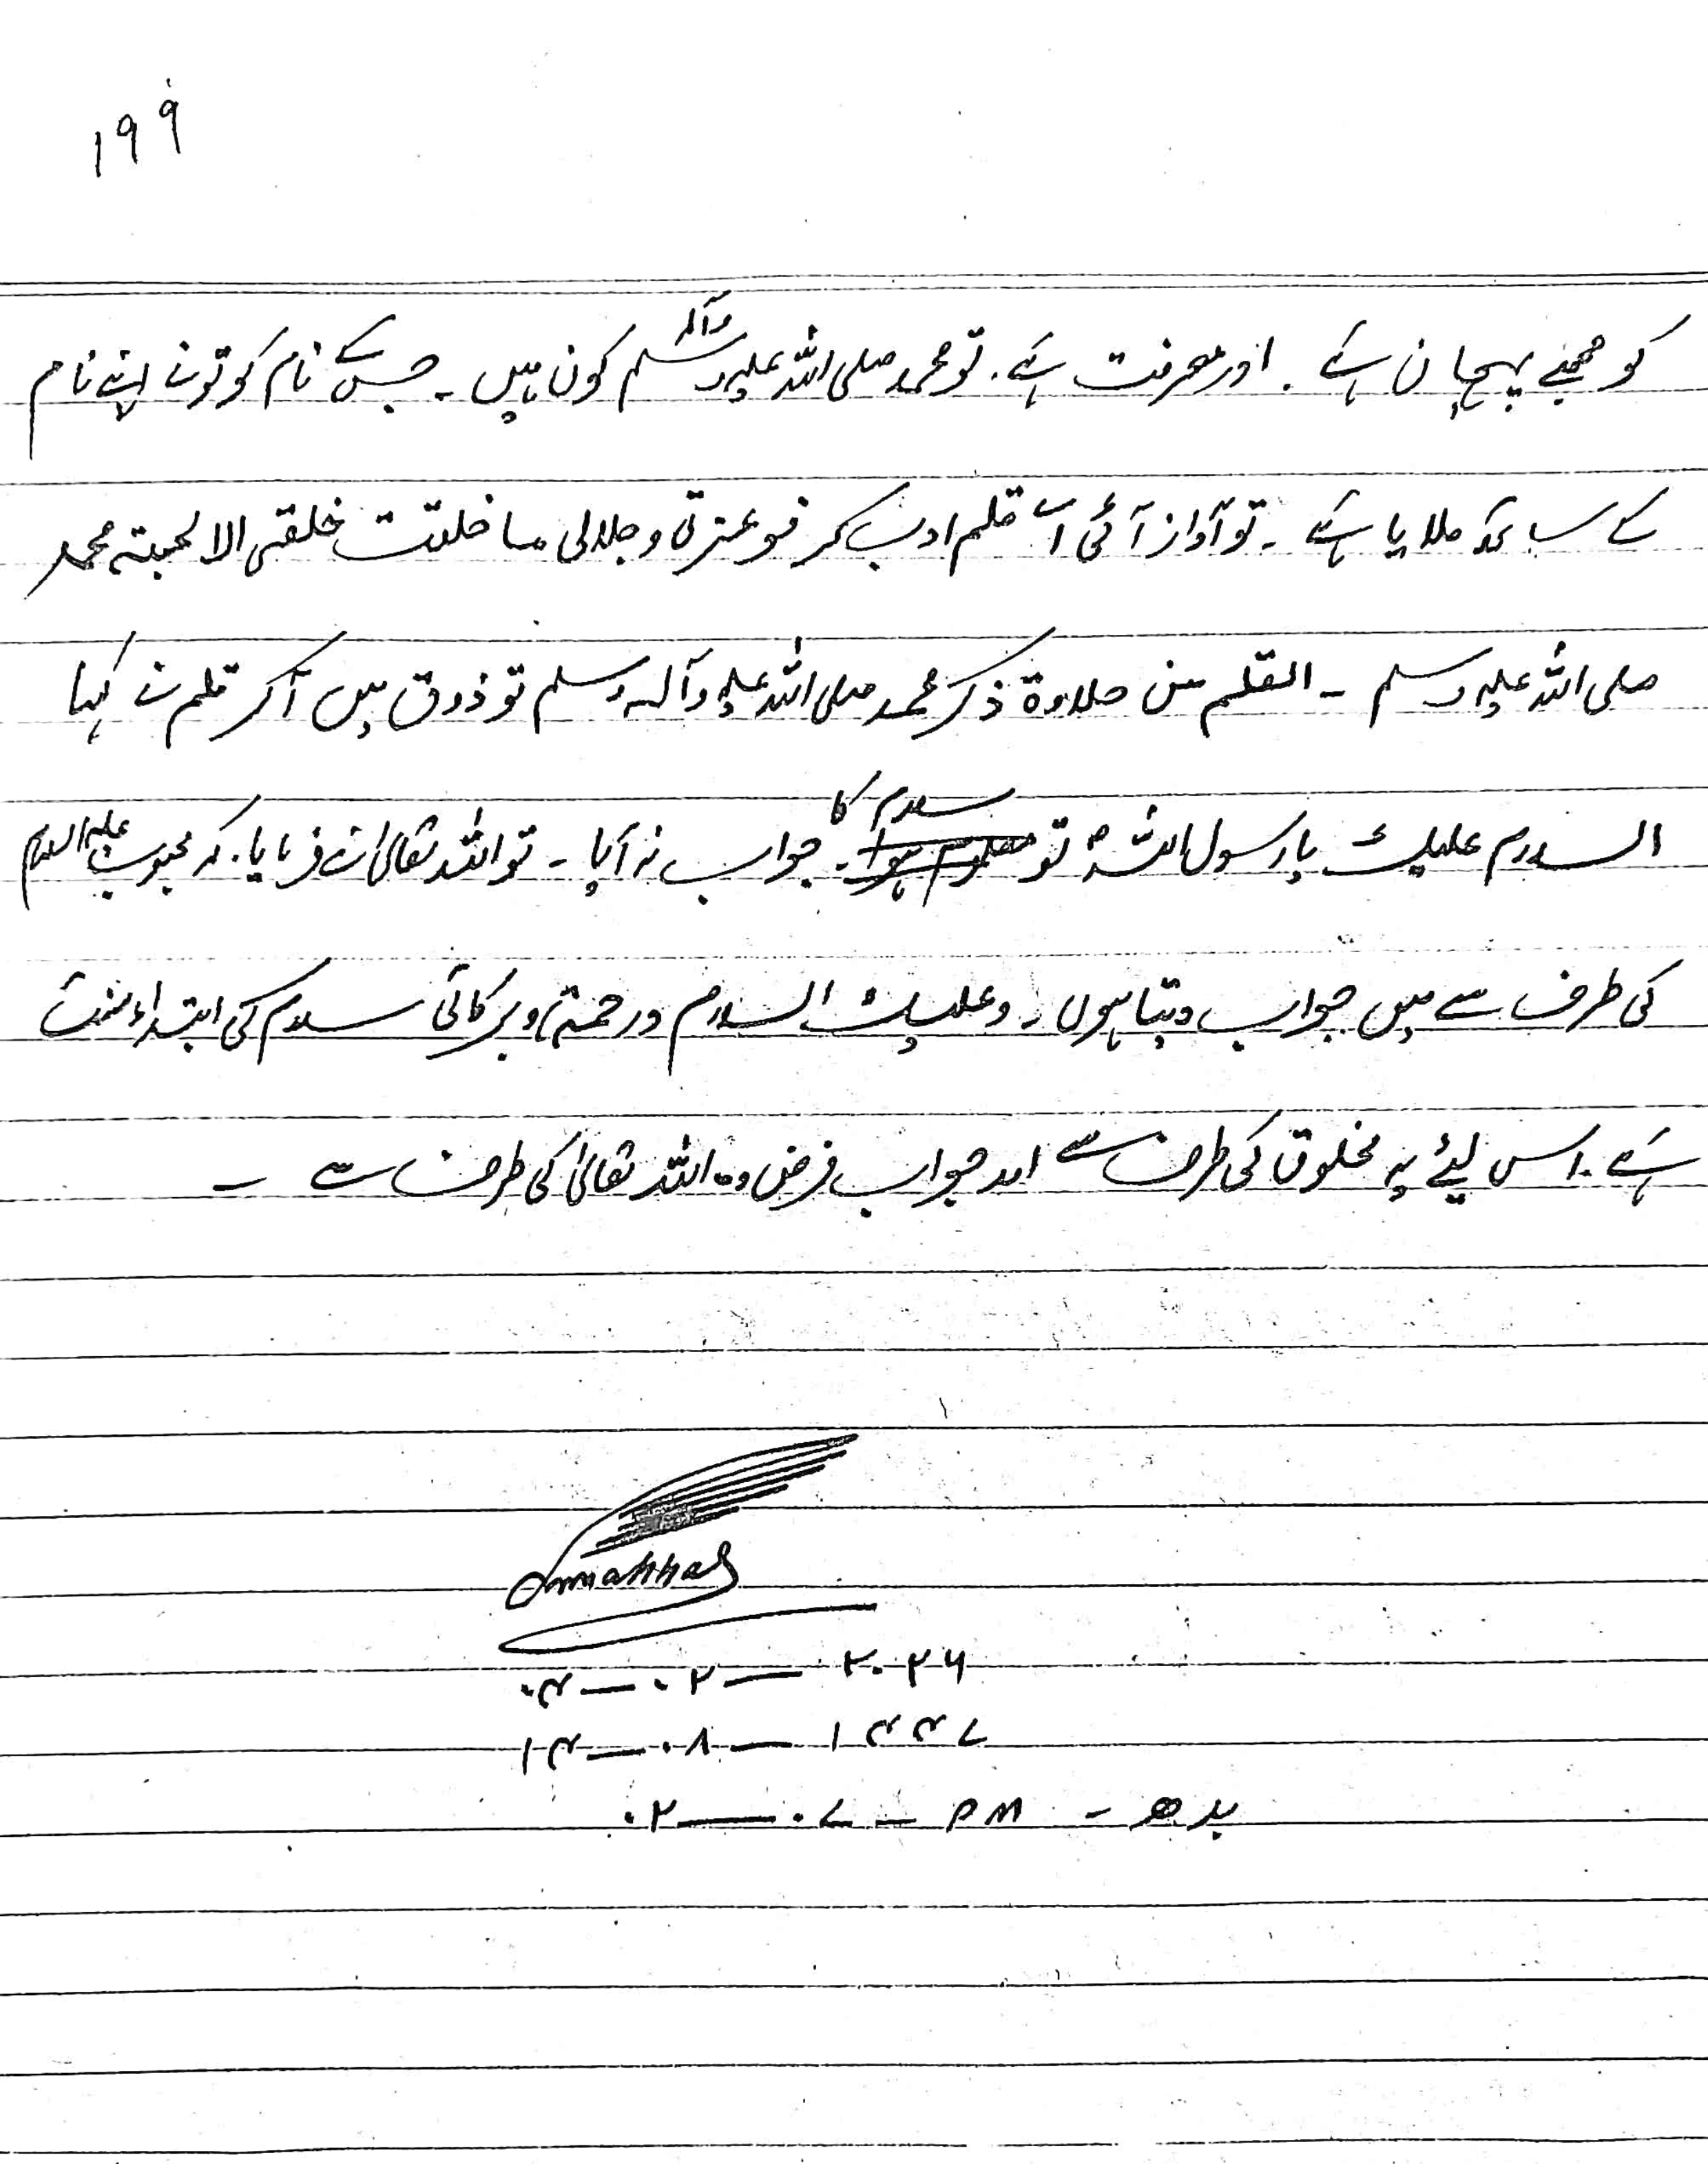 ۱۹۹
کو مجھے پہچان ہے۔ اور معرفت ہے۔ تو محمد صلی اللہ علیہ وآلہ وسلم کون ہیں۔ جس کے نام کو تونے اپنے نام
کے ساتھ ملایا ہے۔ تو آواز آئی اے قلم ادب کر فوعزتی وجلالی ما خلقت خلقی الا لمحبتہ محمد
صلی اللہ علیہ وسلم ۔ القلم من حلاوۃ ذکر محمد صلی اللہ علیہ وآلہ وسلم تو ذوق میں آکر قلم نے کہا
السلام علیک یا رسول اللہ تو سلام کا جواب نہ آیا ۔ تو اللہ تعالیٰ نے فرمایا۔ کہ محبوب علیہ السلام
کی طرف سے میں جواب دیتا ہوں۔ وعلیک السلام ورحمتہ وبرکاتی سلام کی ابتداء سنت
ہے۔ اس لیئے یہ مخلوق کی طرف سے اور جواب فرض وہ اللہ تعالیٰ کی طرف سے ۔
۰۴ — ۰۲ — ۲۰۲۶
۱۴ — ۰۸ — ۱۴۴۷
۰۲ — ۰۷ — PM - بدھ